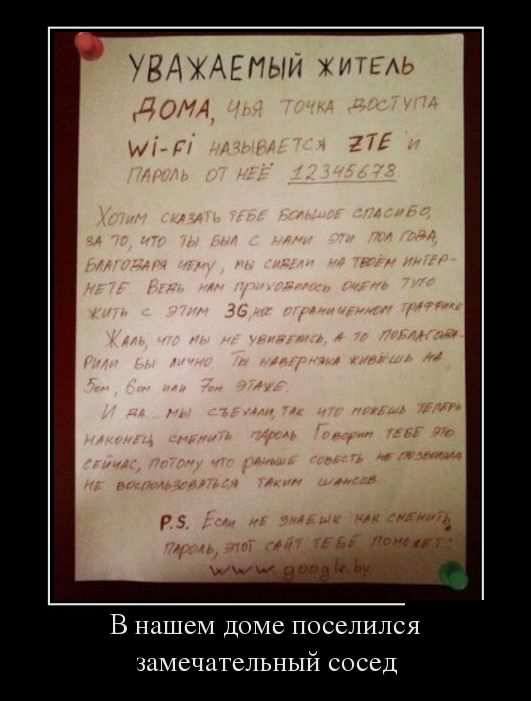 УВАЖАЕМЫЙ ЖИТЕЛЬ
ДОМА, ЧЬЯ ТОЧКА ДОСТУПА
Wi-Fi НАЗЫВАЕТСЯ ZTE И
ПАРОЛЬ ОТ НЕЁ 12345678
ХОТИМ СКАЗАТЬ ТЕБЕ БОЛЬШОЕ СПАСИБО,
ЗА ТО, ЧТО ТЫ БЫЛ С НАМИ ЭТИ ПОЛ ГОДА,
БЛАГОДАРЯ ЧЕМУ, МЫ СИДЕЛИ НА ТВОЁМ ИНТЕР-
НЕТЕ. ВЕДЬ НАМ ПРИХОДИЛОСЬ ОЧЕНЬ ТУГО
ЖИТЬ С ЭТИМ 3G, ОГРАНИЧЕННОМ ТРАФФИКЕ
ЖАЛЬ, ЧТО МЫ НЕ УВИДЕЛИСЬ, А ТО ПОБЛАГОДА-
РИЛИ БЫ ЛИЧНО. ТЫ НАВЕРНЯКА ЖИВЁШЬ НА
5ом, 6ом ИЛИ 7ом ЭТАЖЕ.
И ДА... МЫ СЪЕХАЛИ, ТАК ЧТО МОЖЕШЬ ТЕПЕРЬ
НАКОНЕЦ СМЕНИТЬ ПАРОЛЬ. ГОВОРИМ ТЕБЕ ЭТО
СЕЙЧАС, ПОТОМУ ЧТО РАНЬШЕ СОВЕСТЬ НЕ ПОЗВОЛЯЛА
НЕ ВОСПОЛЬЗОВАТЬСЯ ТАКИМ ШАНСОМ.
P.S. ЕСЛИ НЕ ЗНАЕШЬ КАК СМЕНИТЬ
ПАРОЛЬ, ЭТОТ САЙТ ТЕБЕ ПОМОЖЕТ:
www.google.by
В нашем доме поселился
замечательный сосед